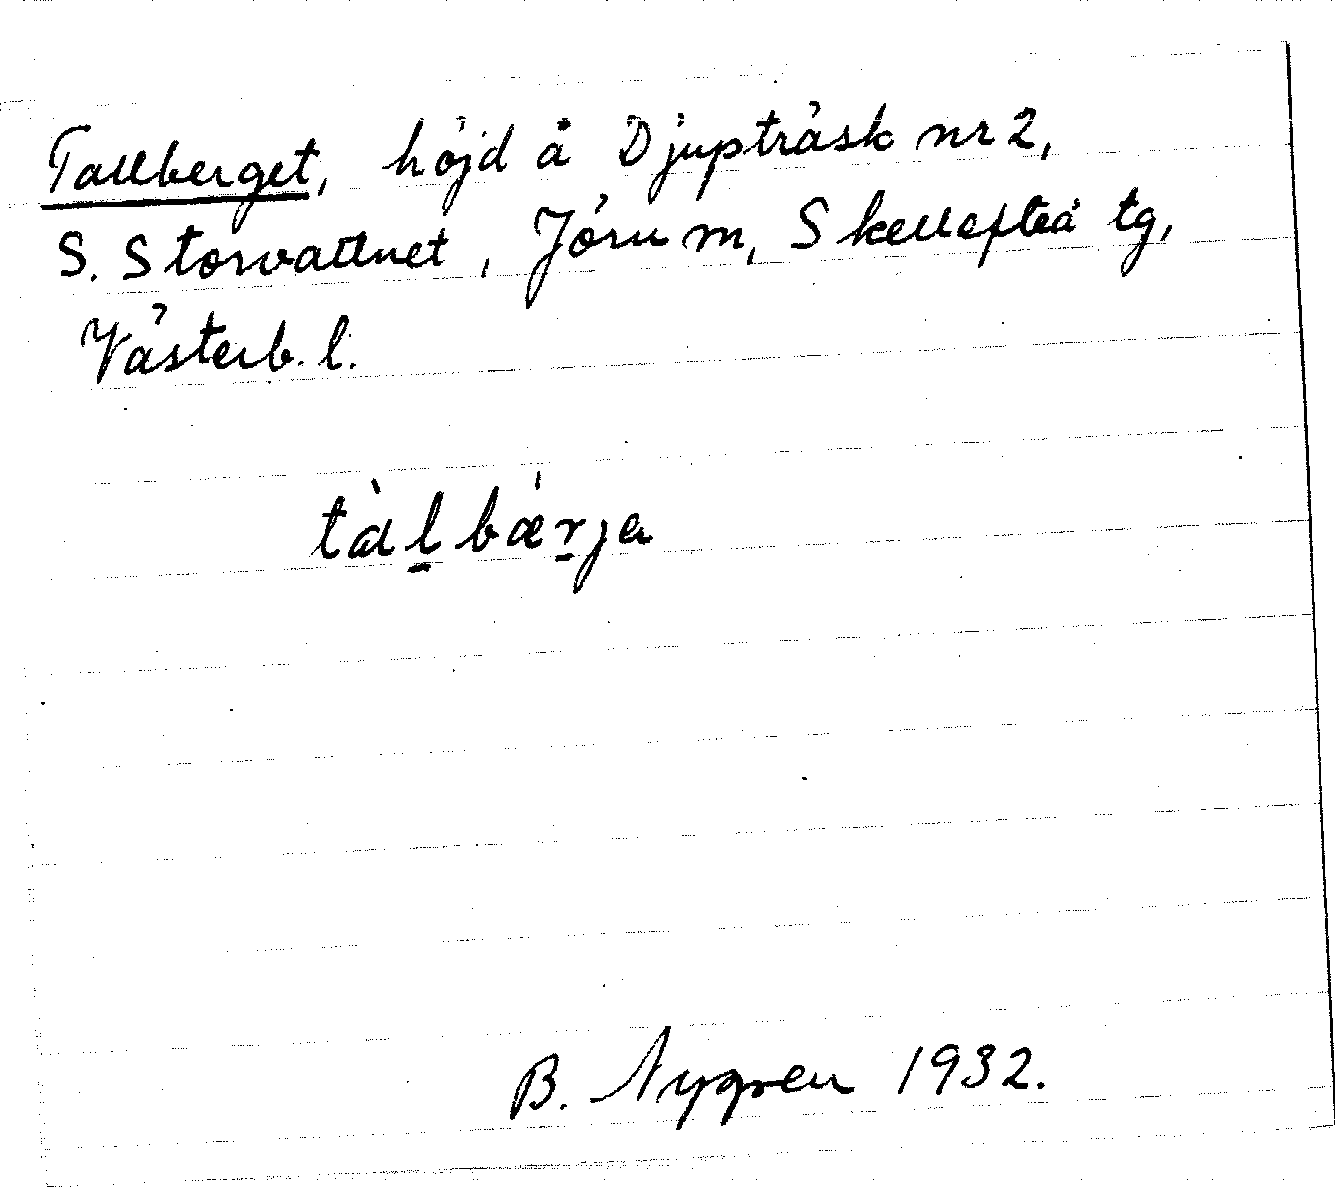 Tallberget, höjd å Djupträsk nr 2,
S. Storvattnet, Jörn m, Skellefteå tg,
Västerb. l.
tàl̠bæ̍r̠ja
B. Nygren 1932.